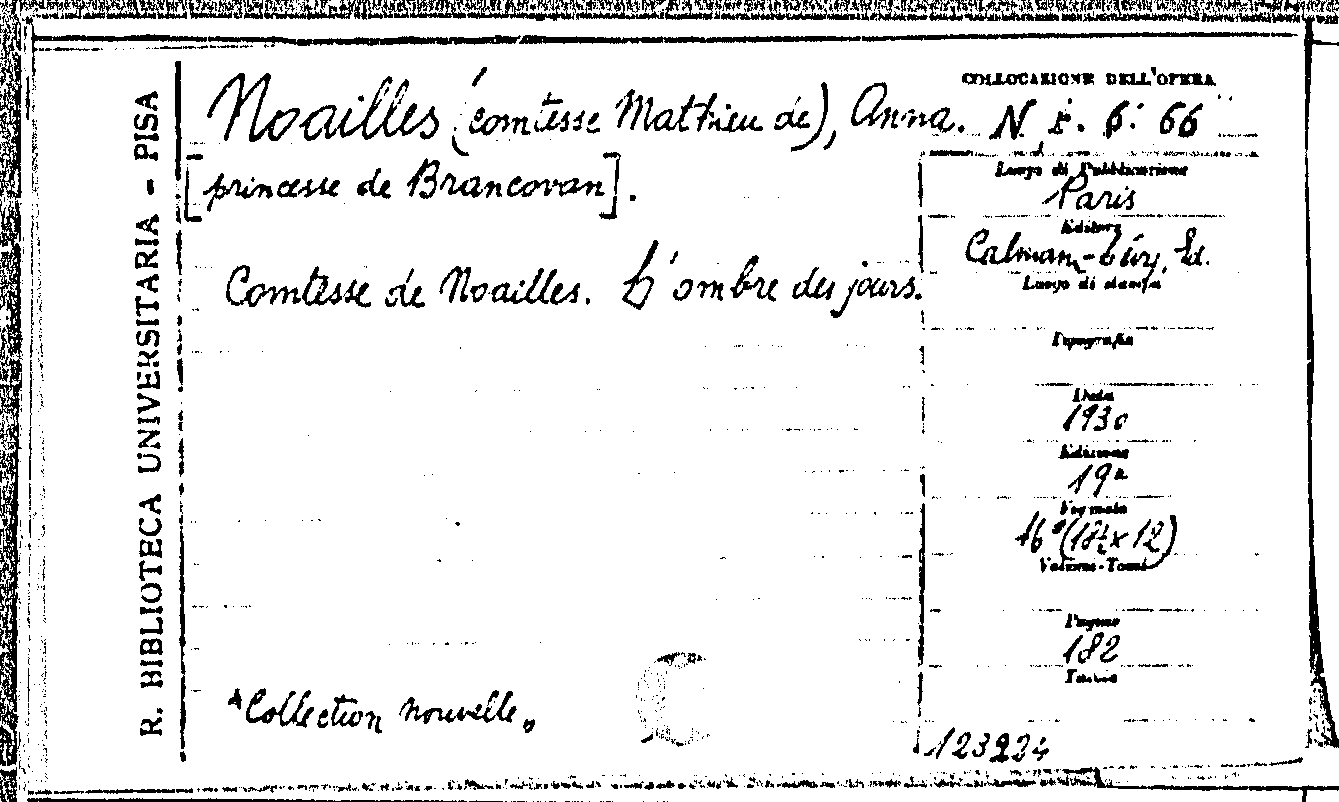 R. BIBLIOTECA UNIVERSITARIA - PISA
Noailles (comtesse Mathieu de), Anna.
[princesse de Brancovan].
Comtesse de Noailles. L'ombre des jours.
"Collection nouvelle"
COLLOCAZIONE DELL'OPERA
N r. 6. 66
Luogo di Pubblicazione
Paris
Editore
Calmann-Lévy, Ed.
Luogo di stampa
Tipografia
Data
1930
Edizione
19ª
Formato
16° (18½ x 12)
Volume-Tomi
Pagine
182
Tavole
123234